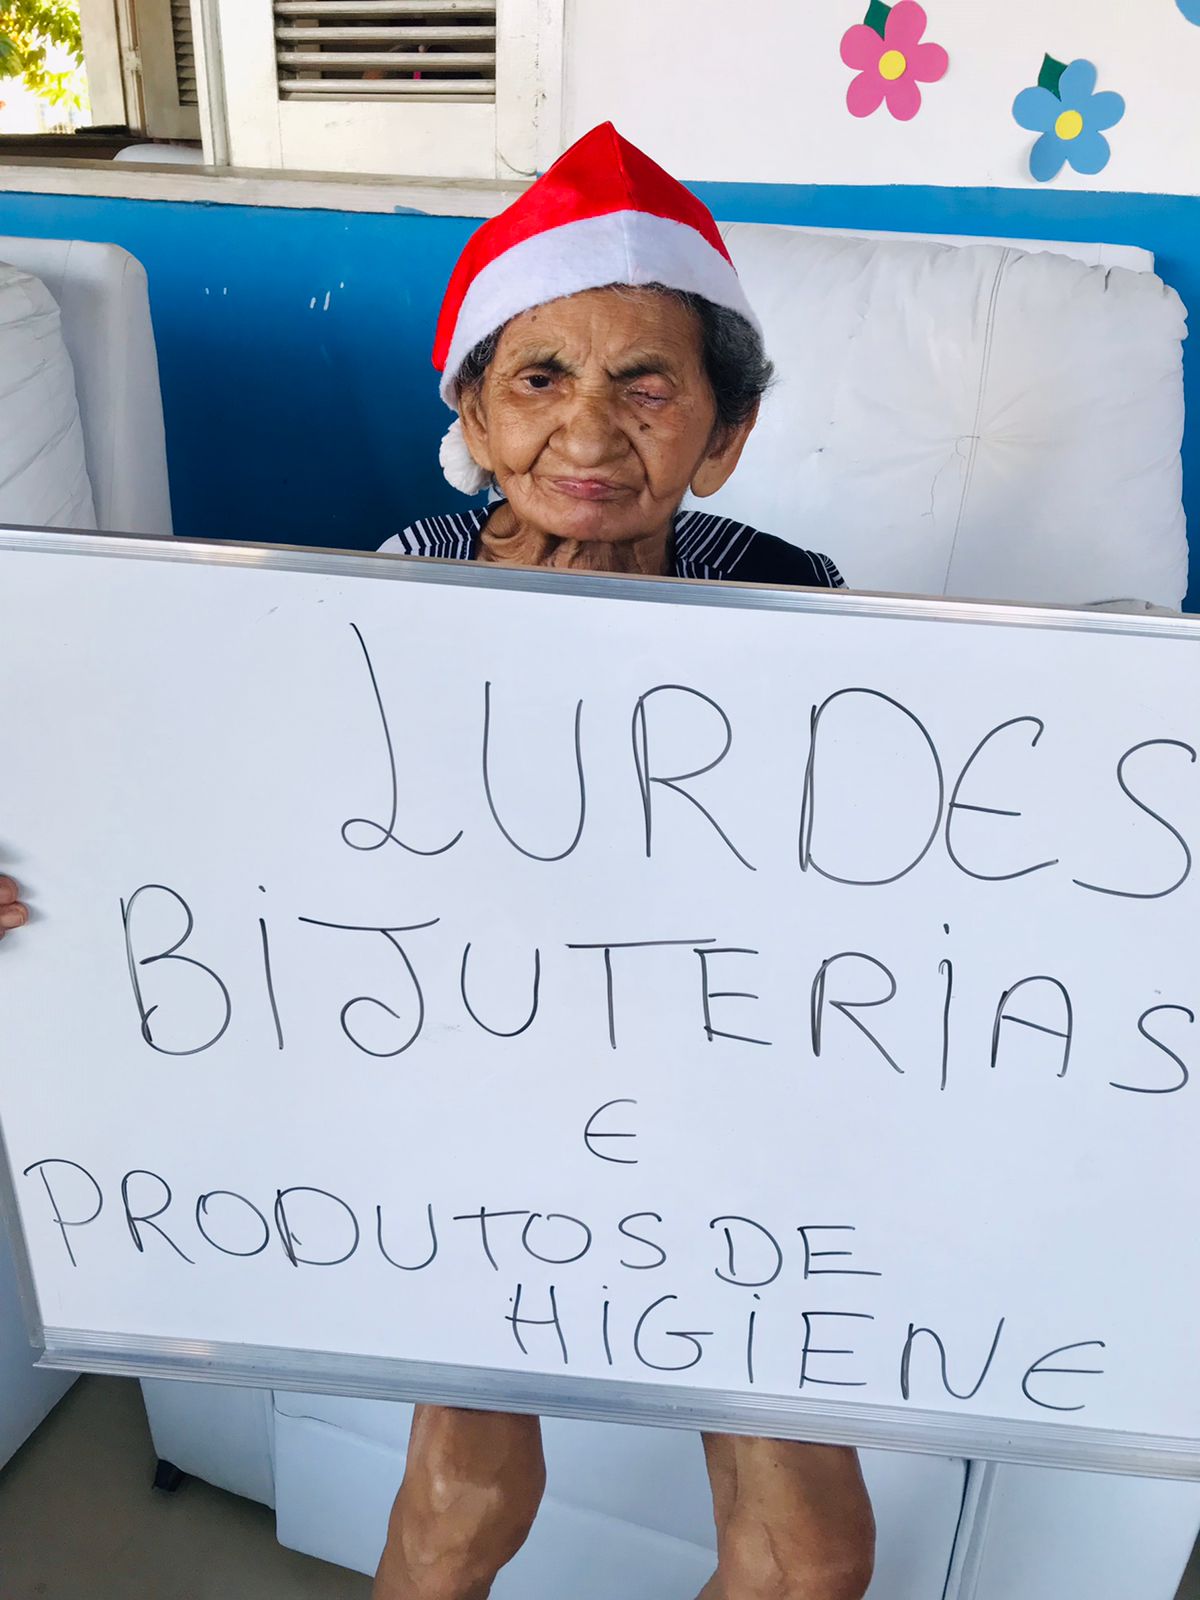 LURDES
BIJUTERIAS
E
PRODUTOS DE
HIGIENE